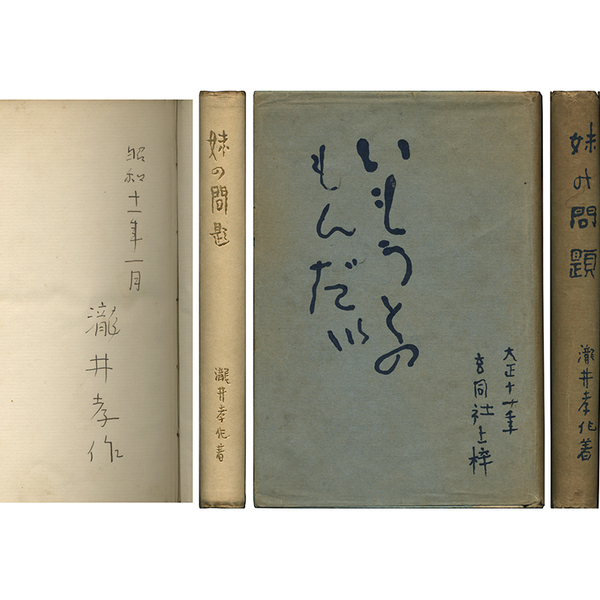 昭和十一年一月
瀧井孝作
妹の問題
瀧井孝作著
いもうとの
もんだい
大正十一年
玄同社上梓
妹の問題
瀧井孝作著